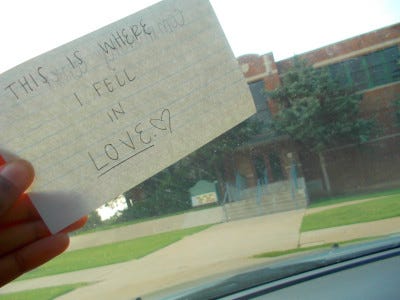 THIS IS WHERE
I FELL
IN
LOVE.♡